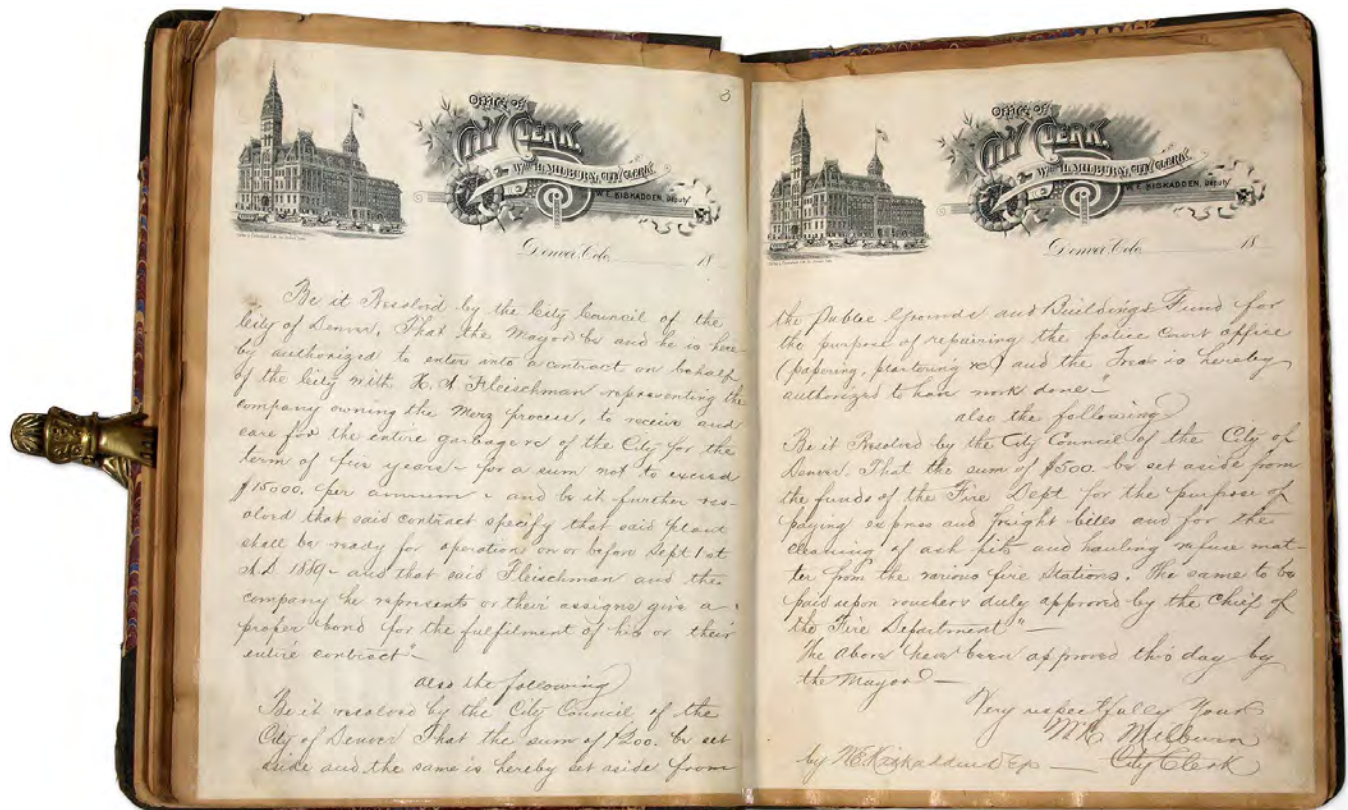 3
OFFICE OF
CITY CLERK.
Wm. R. MILBURN, CITY CLERK.
W. E. KISKADDEN, DEPUTY
Denver, Colo. 18
Be it Resolvd by the City Council of the
City of Denver, That the Mayor be and he is here-
by authorized to enter into a contract on behalf
of the City with Fleischman representing the
company owning the Merz process, to receive and
care for the entire garbage &c of the City for the
term of five years – for a sum not to exceed
$15000. per annum – and be it further res-
olved that said contract specify that said plant
shall be ready for operation on or before Sept 1st
A.D. 1889 – and that said Fleischman and the
company he represents or their assigns give a
proper bond for the fulfilment of his or their
entire contract" –
also the following
Be it resolved by the City Council of the
City of Denver That the sum of $200. be set
aside and the same is hereby set aside from
OFFICE OF
CITY CLERK.
Wm. R. MILBURN, CITY CLERK.
W. E. KISKADDEN, DEPUTY
Denver, Colo. 18
the Public Grounds and Buildings Fund for
the purpose of repairing the police Court office
(papering, plastering &c) and the is hereby
authorized to have work done –"
also the following
Be it Resolved by the City Council of the City of
Denver. That the sum of $500 – be set aside from
the funds of the Fire Dept for the purpose of
paying express and freight bills and for the
cleaning of ash pits and hauling refuse mat-
ter from the various fire Stations. The same to be
paid upon vouchers duly approved by the Chief of
the Fire Department" –
The above have been approved this day by
the Mayor –
Very respectfully Yours
Milburn
by W E Kiskadden Dep — City Clerk